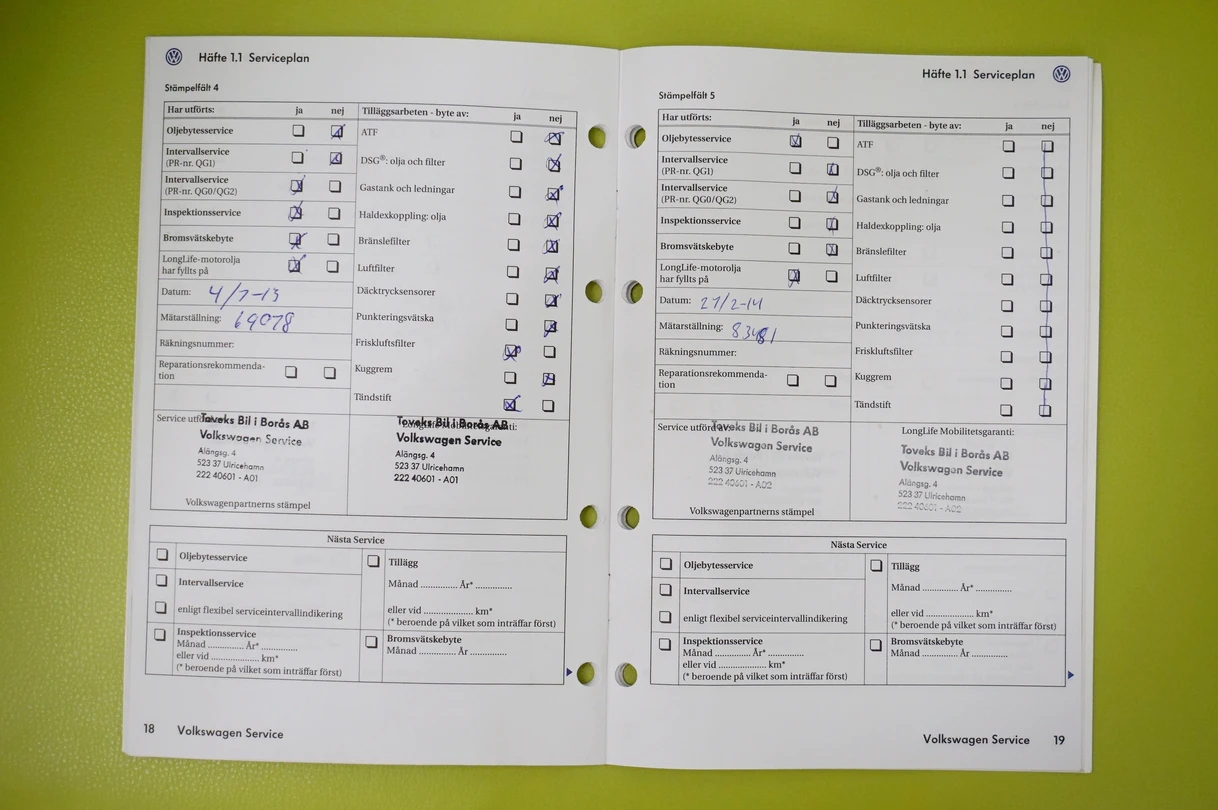 Häfte 1.1 Serviceplan
Stämpelfält 4
Har utförts: ja nej
Oljebytesservice
Intervallservice
(PR-nr. QG1)
Intervallservice
(PR-nr. QG0/QG2)
Inspektionsservice
Bromsvätskebyte
LongLife-motorolja
har fyllts på
Datum: 4/7-13
Mätarställning: 69078
Räkningsnummer:
Reparationsrekommenda-
tion
Tilläggsarbeten - byte av: ja nej
ATF
DSG®: olja och filter
Gastank och ledningar
Haldexkoppling: olja
Bränslefilter
Luftfilter
Däcktrycksensorer
Punkteringsvätska
Friskluftsfilter
Kuggrem
Tändstift
Service utförd av:
Toveks Bil i Borås AB
Volkswagen Service
Älängsg. 4
523 37 Ulricehamn
222 40601 - A01
Volkswagenpartnerns stämpel
LongLife Mobilitetsgaranti:
Toveks Bil i Borås AB
Volkswagen Service
Älängsg. 4
523 37 Ulricehamn
222 40601 - A01
Nästa Service
Oljebytesservice
Intervallservice
enligt flexibel serviceintervallindikering
Inspektionsservice
Månad ............. År* .............
eller vid .................... km*
(* beroende på vilket som inträffar först)
Tillägg
Månad ............. År* .............
eller vid .................... km*
(* beroende på vilket som inträffar först)
Bromsvätskebyte
Månad ............. År .............
18 Volkswagen Service
Häfte 1.1 Serviceplan
Stämpelfält 5
Har utförts: ja nej
Oljebytesservice
Intervallservice
(PR-nr. QG1)
Intervallservice
(PR-nr. QG0/QG2)
Inspektionsservice
Bromsvätskebyte
LongLife-motorolja
har fyllts på
Datum: 27/2-14
Mätarställning: 83481
Räkningsnummer:
Reparationsrekommenda-
tion
Tilläggsarbeten - byte av: ja nej
ATF
DSG®: olja och filter
Gastank och ledningar
Haldexkoppling: olja
Bränslefilter
Luftfilter
Däcktrycksensorer
Punkteringsvätska
Friskluftsfilter
Kuggrem
Tändstift
Service utförd av:
Toveks Bil i Borås AB
Volkswagen Service
Älängsg. 4
523 37 Ulricehamn
222 40601 - A02
Volkswagenpartnerns stämpel
LongLife Mobilitetsgaranti:
Toveks Bil i Borås AB
Volkswagen Service
Älängsg. 4
523 37 Ulricehamn
222 40601 - A02
Nästa Service
Oljebytesservice
Intervallservice
enligt flexibel serviceintervallindikering
Inspektionsservice
Månad ............. År* .............
eller vid .................... km*
(* beroende på vilket som inträffar först)
Tillägg
Månad ............. År* .............
eller vid .................... km*
(* beroende på vilket som inträffar först)
Bromsvätskebyte
Månad ............. År .............
Volkswagen Service 19